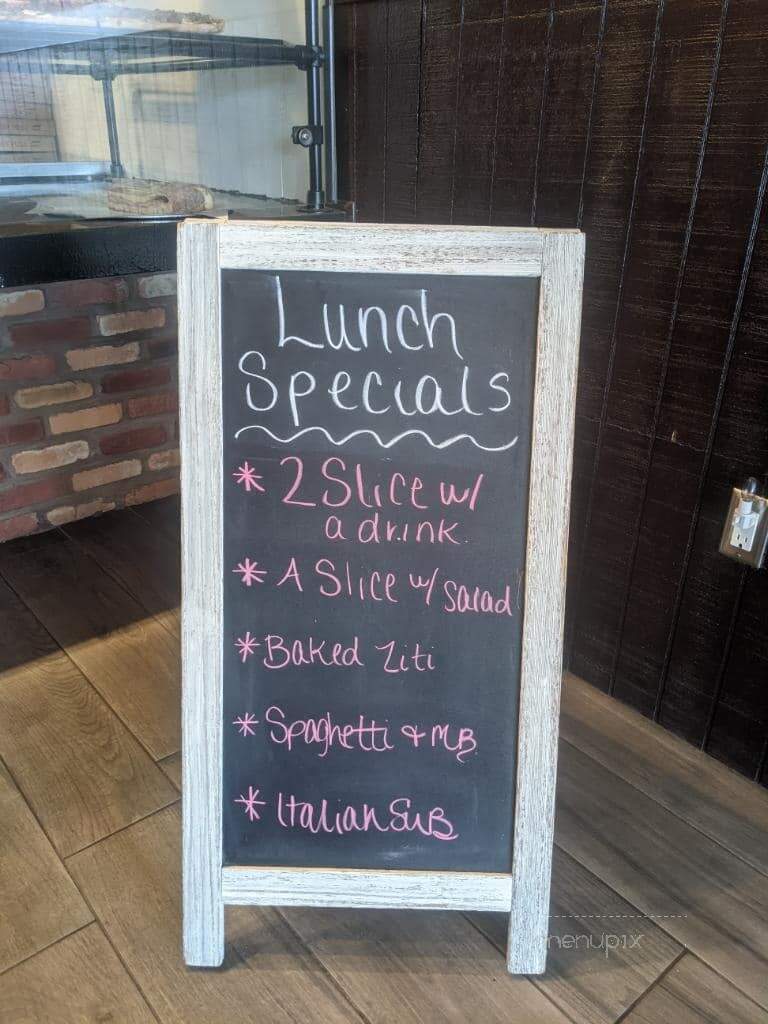 Lunch
Specials
* 2 Slice w/
a drink.
* A Slice w/ Salad
* Baked Ziti
* Spaghetti + MB
* Italian Sub
menupix